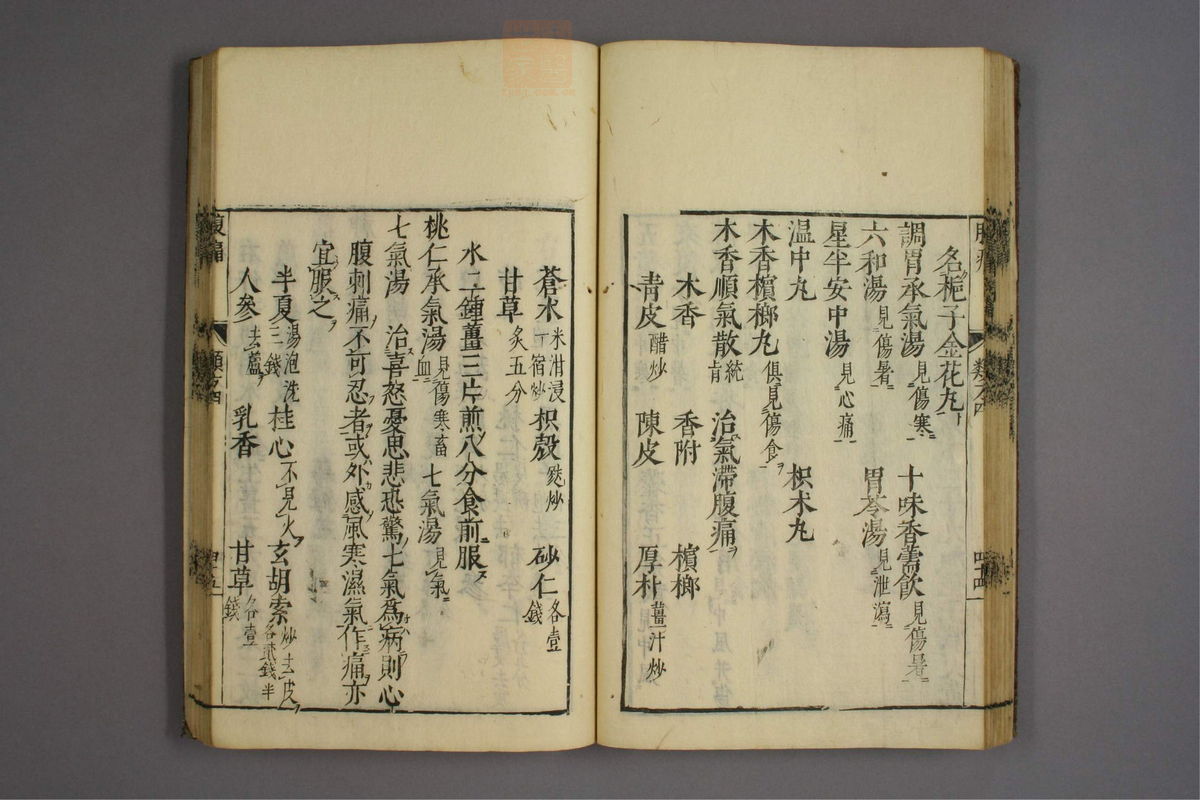 名梔子金花丸
調胃承氣湯 見傷寒 十味香薷飲 見傷暑
六和湯 見傷暑 胃苓湯 見泄瀉
星半安中湯 見心痛
温中丸 枳朮丸
木香檳榔丸 俱見傷食
木香順氣散 統旨 治氣滯腹痛
木香 香附 檳榔
青皮 醋炒 陳皮 厚朴 薑汁炒
腹痛 類方 四 四十五
蒼朮 米泔浸一宿炒 枳殼 麩炒 砂仁 各壹錢
甘草 炙五分
水二鍾薑三片煎八分食前服
桃仁承氣湯 見傷寒畜血 七氣湯 見氣
七氣湯 治喜怒憂思悲恐驚七氣為病則心
腹刺痛不可忍者或外感風寒濕氣作痛亦
宜服之
半夏 湯泡洗三錢 桂心 不見火 玄胡索 炒去皮各貳錢半
人參 去蘆 乳香 甘草 各壹錢